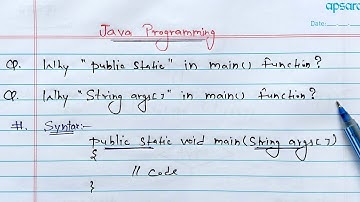 apsara
Date:
Java Programming
Q. Why "public static" in main() function?
Q. Why "String args[]" in main() function?
#. Syntax:-
public static void main(String args[])
{
// code
}